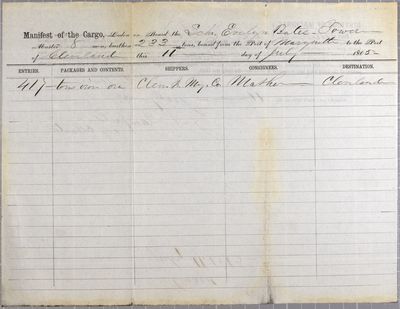 Manifest of the Cargo, Laden on Board the Schr. Evelyn Bates. Tower
Master 8 men, burthen 233 tons, bound from the Port of Marquette to the Port
of Cleveland this 11 day of July 1865
ENTRIES. PACKAGES AND CONTENTS. SHIPPERS. CONSIGNEES. DESTINATION.
417 tons iron ore Clev. I. Mg. Co. Mather Cleveland